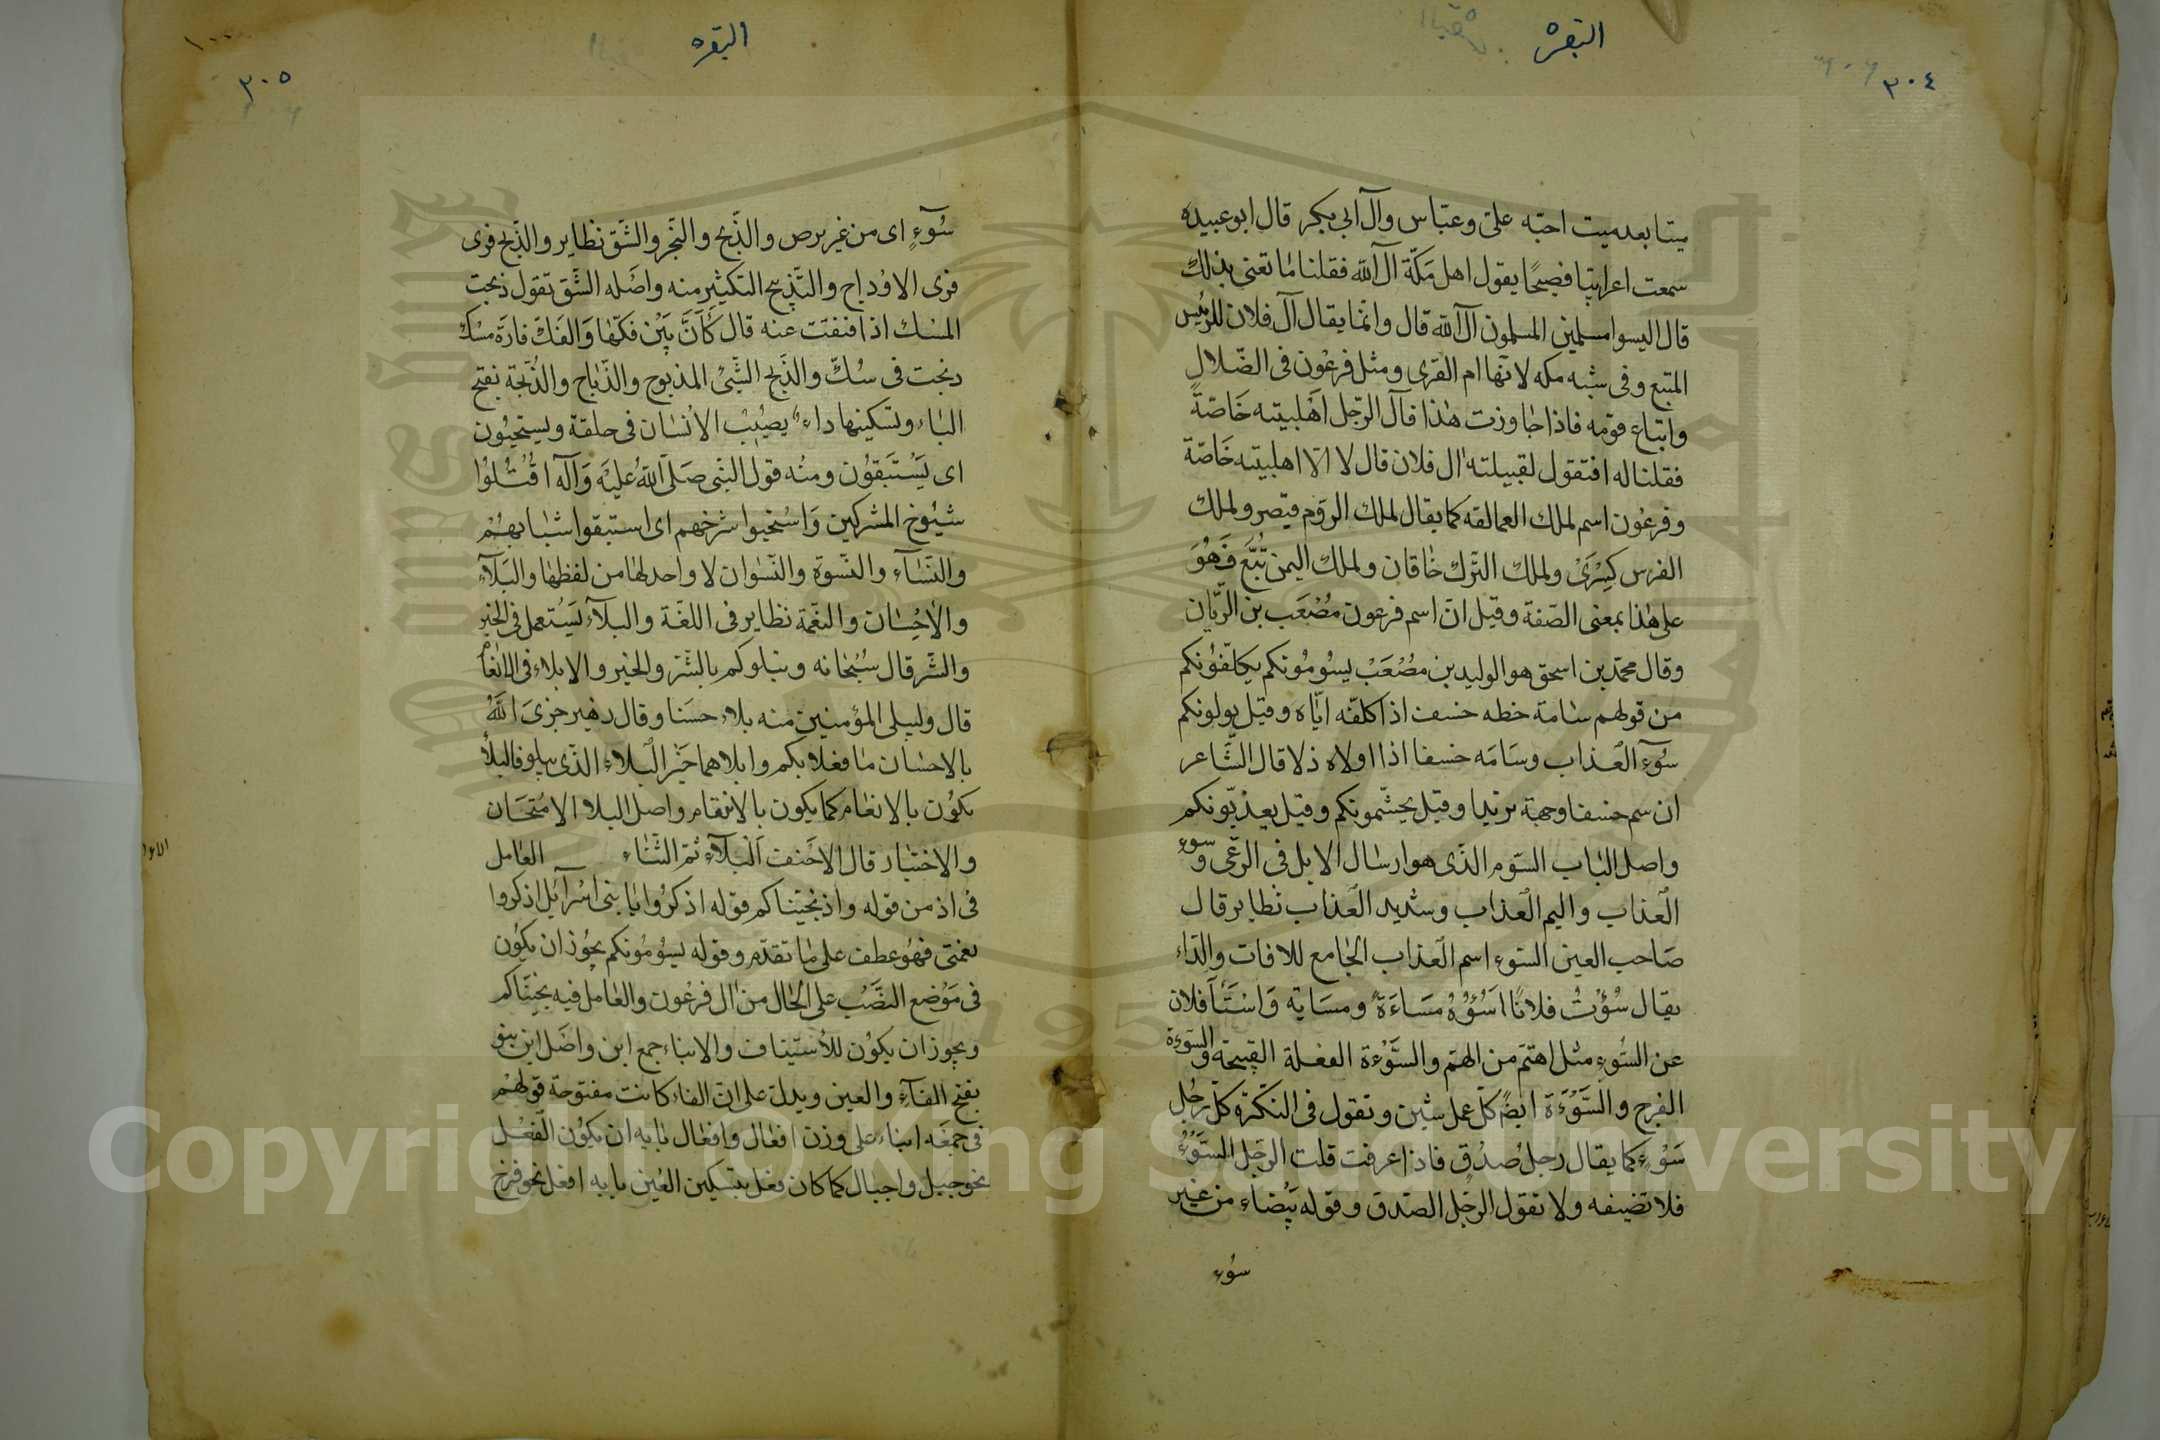 البقره
٣٠٤
ميتا بعد ميت احبّه علىّ وعبّاس وآل ابى بكر قال ابو عبيده
سمعت اعرابيّا فصيحًا يقول اهل مَكّة آل اللّه فقلنا مٰا تعنى بذلك
قال اليسوا مسلمين المسلمون آل اللّه قال وانّمٰا يقال آل فلان للرّئيس
المتبع وفى شبه مكه لانّهٰا ام القرى ومثل فرعون فى الضّلال
واتباع قومه فاذا جٰاوزت هٰذا فآل الرّجل اهلبيته خَاصّةً
فقلنا له افتقول لقبيلته آل فلان قال لا الّا اهلبيته خَاصّة
وفرعُون اسم لملك العمالقه كما يقال لملك الروّم قيصر ولملك
الفرس كِسْرَىْ ولملك الترّك خٰاقان ولملك اليمن تُبَّعَ فَهُوَ
على هٰذا بمعنى الصّفة وقيل انّ اسم فرعون مُصْعَب بن الرّيّان
وقال محمّد بن اسحق هو الوليد بن مصْعَبْ يسُومُونكم يكلّفوُنكم
من قولهم سٰامه خطه خسف اذا كلفّه ايّاه وقيل يولونكم
سُوٓء العذاب وسَامَه خسفا اذا اولاه ذلا قال الشّاعر
ان سم خسفا وجهة تربدا وقيل يجشّمونكم وقيل يعذّبونكم
واصل البٰاب السّوم الذّى هو ارسٰال الابل فى الرّعى وسوء
العذاب واليم العذاب وشديد العذاب نظٰاير قال
صَاحب العين السّوء اسم العذاب الجٰامع للافات والدّاء
يقال سُؤْتُ فلانًا اَسُؤُهُ مسَاءَةً ومسَاية وَاسْتَآفلان
عن السُّوءِ مثل اهتمّ من الهمّ والسَّوْءَة الفعلة القبيحة والسّوءة
الفرج والسَّوْءَة ايضً كلّ عمل شين وتقول فى النّكرة وكلّ رجُل
سَوْءٍ كما يقال رجلُ صدُقٍ فاذا عرفت قلت الرّجل السَّوْءُ
فلا تضيفه ولا تقول الرّجل الصّدق وقوله بيْضاء من غير
سوُء
البقره
٣٠٥
سُوٓءٍ اى من غير برص والذّبح والنّحر والشّق نظاير والذّبح فرى
فرى الاوْداج والتّذبيح التكثير منه واصْله الشّق تقول ذبحت
المسْك اذا فتقت عنه قال كَأَنَّ بَيْن فكّهٰا وَالفَكّ فارَة مسْك
ذبحت فى سُكّ والذّبح الشّئ المذبوح والذّبٰاح والذُّبْحَة بفتح
البٰاء وتسكينها داءٌ يصيْبُ الانْسٰان فى حلقة ويستحيُون
اى يَسْتَبقوُن ومنه قول النّبى صَلّى اللّهُ علَيْه وَآله اقُتْلوُا
شيُوخ المشركين وَاسْتحيوا شرخهم اى استبقوا شبٰابهُمْ
والنّسٰآء والنّسوة والنّسوٰان لا واحد لهٰا من لفظهٰا والبَلٓاء
والاحْسٰان والنّغمة نظاير فى اللّغة والبلآء يَسْتعمل فى الخير
والشّر قال سُبْحٰانه وبنلوكم بالشّر والخير والابلاء فى الانعٰام
قال وليبلى المؤمنين منه بلاء حسَنا وقال زهير جزىَ اللّهُ
بالاحسٰان مٰا فعَلا بكم وابلاهما خَيْر الْبلاء الذّى يبلو فالبلاُ
يكوُن بالانعٰام كما يكون بالانتقام واصل البلا الامْتحَٰان
والاختبار قال الاحنف اَلْبلآء ثمّ الثّنٰاء العٰامل
فى اذ من قوله واذ نجّيناكم قوْله اذكروُا يٰا بنى اسْرآئيل اذكروا
نعمتى فهُو عطف على مٰا تقدّم وقوله يسُومُونكم يجوُز ان يكوُن
فى مَوْضع النصّب على الحٰال من ال فرعُون والعٰامل فيه نجيّناكم
ويجوز ان يكوُن للأستيناف والابناء جمع ابن واصْل ابن بنو
بفتح الفٓاء والعين ويدلّ على انّ الفٰاء كانت مفتوحة قولهمْ
فى جمعَه ابناء على وزن افعٰال وافعٰال بٰابه ان يكوُن لفعَل
نحو جبل واجبال كما كان فعْل بتسْكين العيْن بٰابه افعل نحو فرخ